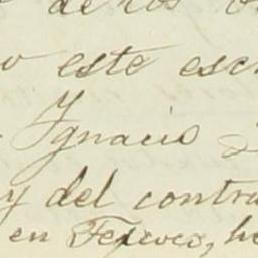 de los
o este esc
Ygnacio
y del contra
en Texcoco, he